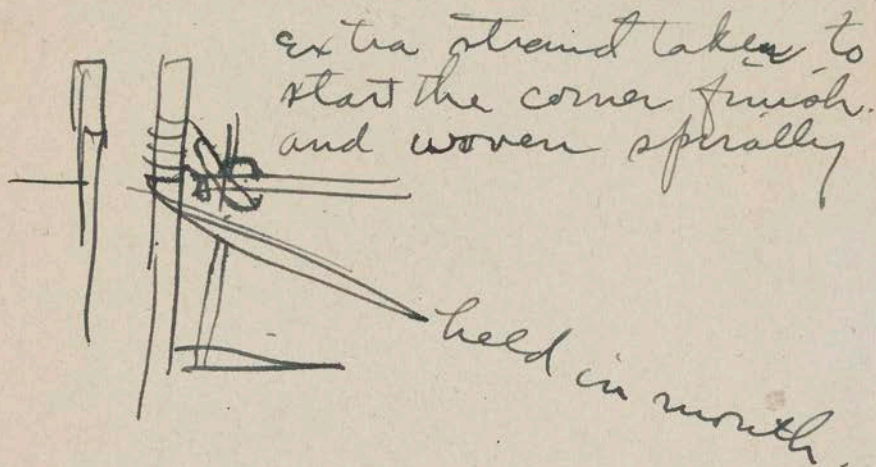 extra strand taken to
start the corner finish.
and woven spirally
held in mouth.